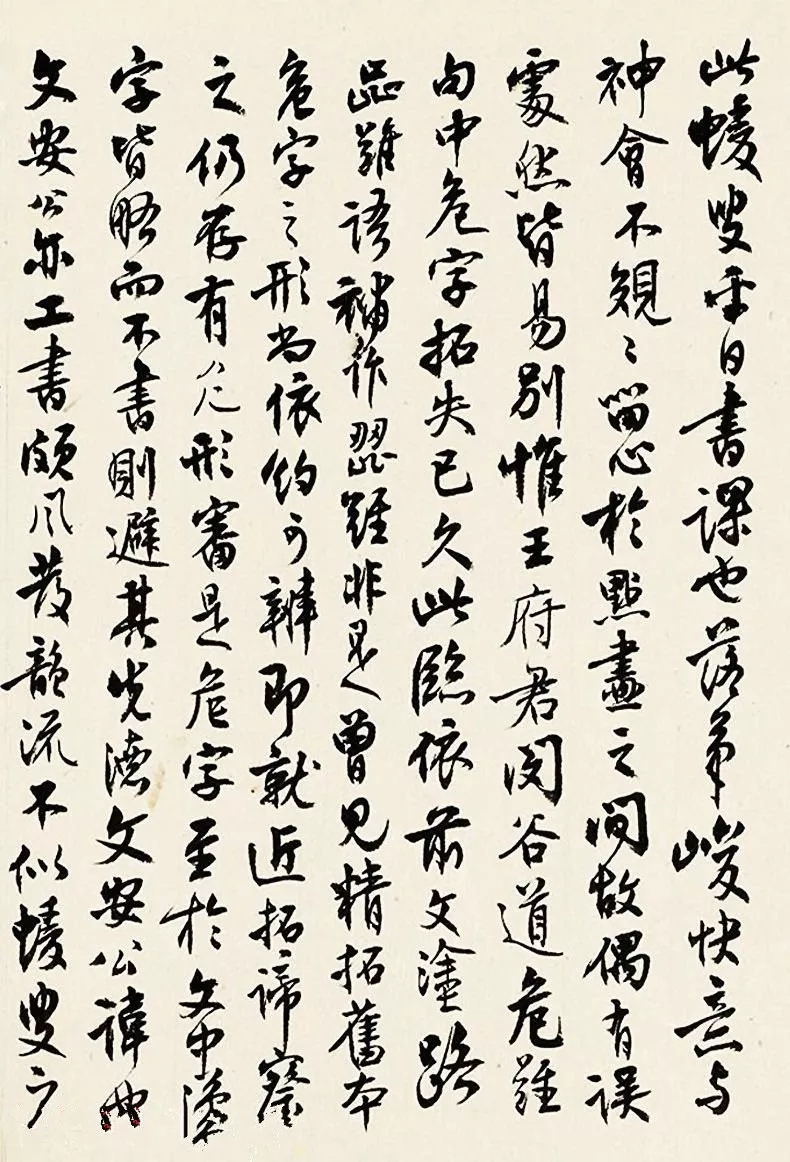 此蝯叟平日書課也落筆峻快意与
神會不覙覙留心於點畫之間故偶有誤
處然皆易別惟王府君閔谷道危難
句中危字拓失已久此臨依前文塗路
歰難語補作歰難非是曾見精拓舊本
危字之形尚依約可辨即就近拓諦審
之仍存有形審是危字至於文中漢
字皆略而不書則避其先德文安公諱也
文安公亦工書頗風發韻流不似蝯叟之